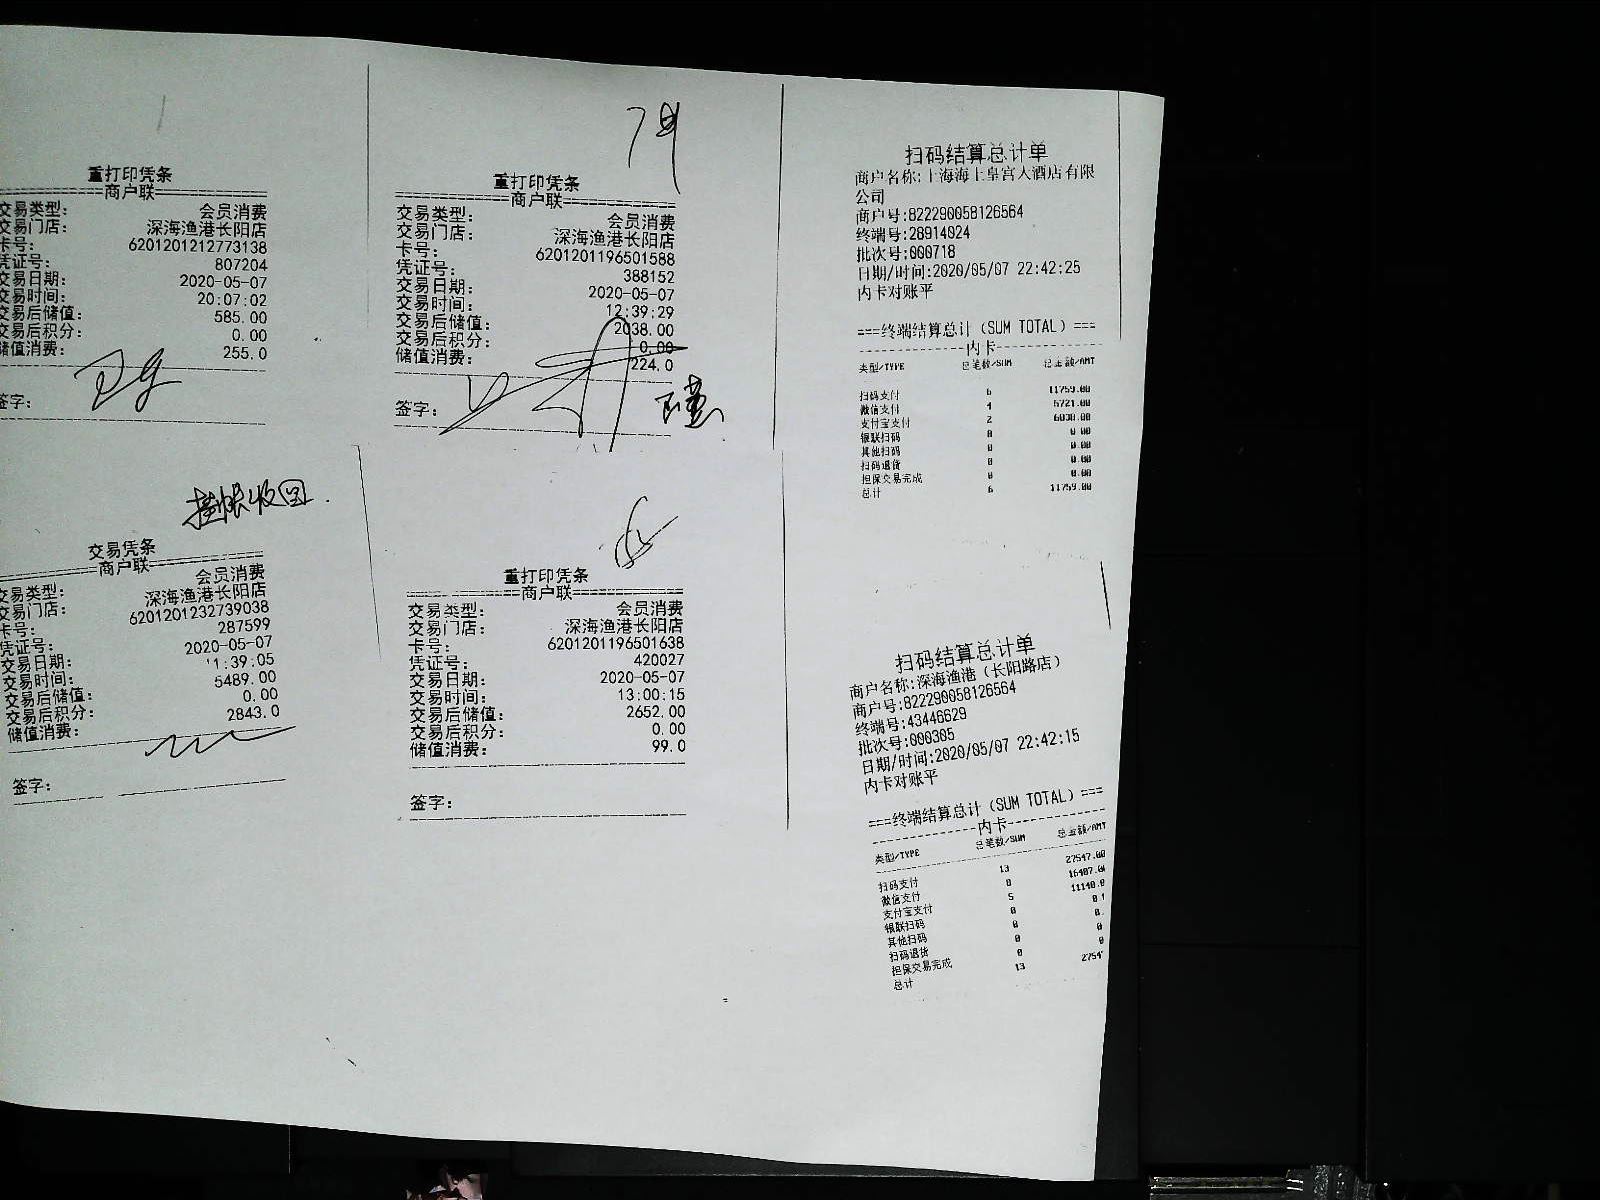 重打印凭条
商户联
交易类型： 会员消费
交易门店： 深海渔港长阳店
卡号： 6201201212773138
凭证号： 807204
交易日期： 2020-05-07
交易时间： 20:07:02
交易后储值： 585.00
交易后积分： 0.00
储值消费： 255.0
签字：
重打印凭条
商户联
交易类型： 会员消费
交易门店： 深海渔港长阳店
卡号： 6201201196501588
凭证号： 388152
交易日期： 2020-05-07
交易时间： 12:39:29
交易后储值： 2038.00
交易后积分： 0.00
储值消费： 224.0
签字：
扫码结算总计单
商户名称:上海海上皇宫大酒店有限
公司
商户号:822290058126564
终端号:28914024
批次号:000718
日期/时间:2020/05/07 22:42:25
内卡对账平
===终端结算总计（SUM TOTAL）===
内卡
类型/TYPE 总笔数/SUM 总金额/AMT
扫码支付 6 11759.00
微信支付 4 5721.00
支付宝支付 2 6038.00
银联扫码 0 0.00
其他扫码 0 0.00
扫码退货 0 0.00
担保交易完成 0 0.00
总计 6 11759.00
挂帐收回
交易凭条
商户联
交易类型： 会员消费
交易门店： 深海渔港长阳店
卡号： 6201201232739038
凭证号： 287599
交易日期： 2020-05-07
交易时间： 1:39:05
交易后储值： 5489.00
交易后积分： 0.00
储值消费： 2843.0
签字：
重打印凭条
商户联
交易类型： 会员消费
交易门店： 深海渔港长阳店
卡号： 6201201196501638
凭证号： 420027
交易日期： 2020-05-07
交易时间： 13:00:15
交易后储值： 2652.00
交易后积分： 0.00
储值消费： 99.0
签字：
扫码结算总计单
商户名称:深海渔港（长阳路店）
商户号:822290058126564
终端号:43446629
批次号:000305
日期/时间:2020/05/07 22:42:15
内卡对账平
===终端结算总计（SUM TOTAL）===
内卡
类型/TYPE 总笔数/SUM 总金额/AMT
扫码支付 13 27547.00
微信支付 8 16407.0
支付宝支付 5 11140.0
银联扫码 0 0
其他扫码 0 0.
扫码退货 0 0
担保交易完成 0 0
总计 13 2754